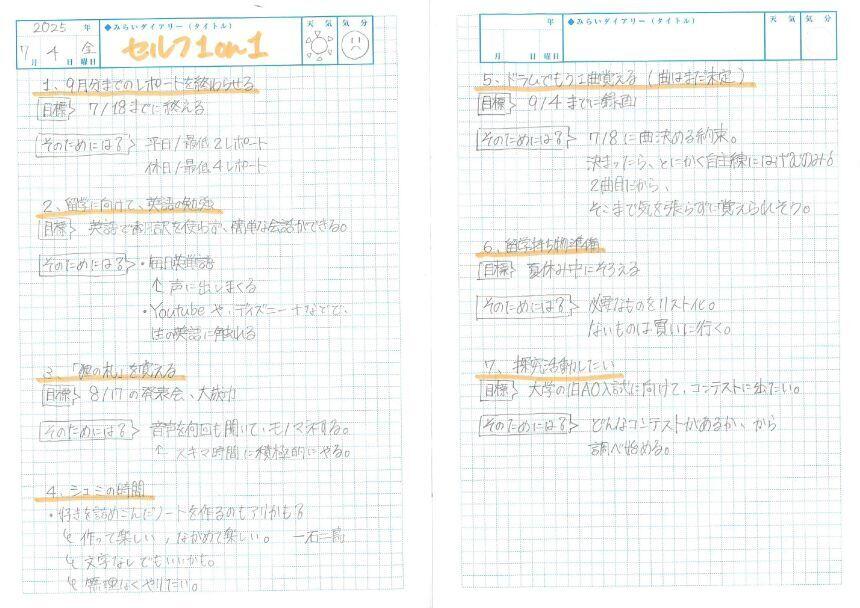 2025 年
7月 4日 金曜日
◆みらいダイアリー（タイトル）
セルフ1on1
天 気
気 分
1、9月分までのレポートを終わらせる
目標 7/18までに終える
そのためには？ 平日/最低2レポート
休日/最低4レポート
2、留学に向けて、英語の勉強
目標 英語で翻訳を使わず、簡単な会話ができる。
そのためには？ ・毎日英単語
↑声に出しまくる
・Youtubeや、ディズニー+などで、
生の英語に触れる
3、「狸の札」を覚える
目標 8/17の発表会、大成功
そのためには？ 音声を何回も聞いて、モノマネする。
↑スキマ時間に積極的にやる。
4、シュミの時間
・好きを詰めこんだノートを作るのもアリかも？
↳作って楽しい、ながめて楽しい。 一石二鳥
↳文字なしでもいいかも。
↳無理なくやりたい。
年
月 日 曜日
◆みらいダイアリー（タイトル）
天 気
気 分
5、ドラムでもう1曲覚える（曲はまだ未定）
目標 9/4までに録画
そのためには？ 7/8に曲決める約束。
決まったら、とにかく自主練にはげむのみ
2曲目だから、
そこまで気を張らずに覚えられそう。
6、留学持ち物準備
目標 夏休み中にそろえる
そのためには？ 必要なものをリスト化。
ないものは買いに行く。
7、探究活動したい
目標 大学の旧AO入試に向けて、コンテストに出たい。
そのためには？ どんなコンテストがあるか、から
調べ始める。